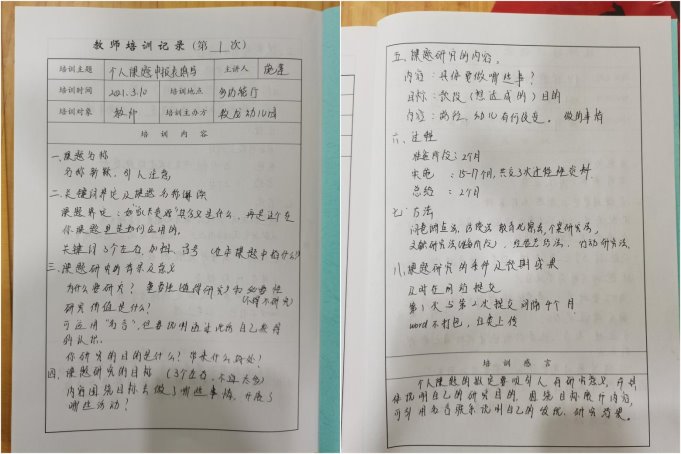 教师培训记录（第 1 次）
培训主题 个人课题申报表填写 主讲人
培训时间 2021.3.10 培训地点 多功能厅
培训对象 教师 培训主办方 幼儿园
培 训 内 容
一、课题名称
名称新颖，引人注意
二、关键词界定及课题名称解读
课题界定：
你课题里是如何应用的。
关键词3个左右，加粗、逗号（在本课题中指什么）
三、课题研究的背景及意义
为什么要研究？重要性（值得研究）和必要性
（不得不研究）
研究价值是什么？
可应用“名言”，但要说明通过此话自己获得
的认识。
你研究的目的是什么？带来什么好处？
四、课题研究的目标（3个左右，不宜太多）
内容围绕目标去做了哪些事情，开展了
哪些活动？
五、课题研究的内容，
内容：具体要做哪些事？
目标：阶段（想达成的）目的
内容：教师、幼儿有何改变。做的事情
六、过程
准备阶段：2个月
实施：15-17个月，共交3次过程性资料
总结：2个月
七、方法
问卷调查法、访谈法、教育观察法、个案研究法，
文献研究法（准备阶段），经验总结法、行动研究法。
八、课题研究的条件及预期成果
及时在网站提交
第1次与第2次提交间隔4个月
word不打包，分类上传
培 训 感 言
个人课题的敲定要吸引人，有研究意义，并具
体说明自己的研究目的，围绕目标展开内容，
可引用名言很来说明自己的发现、研究效果。